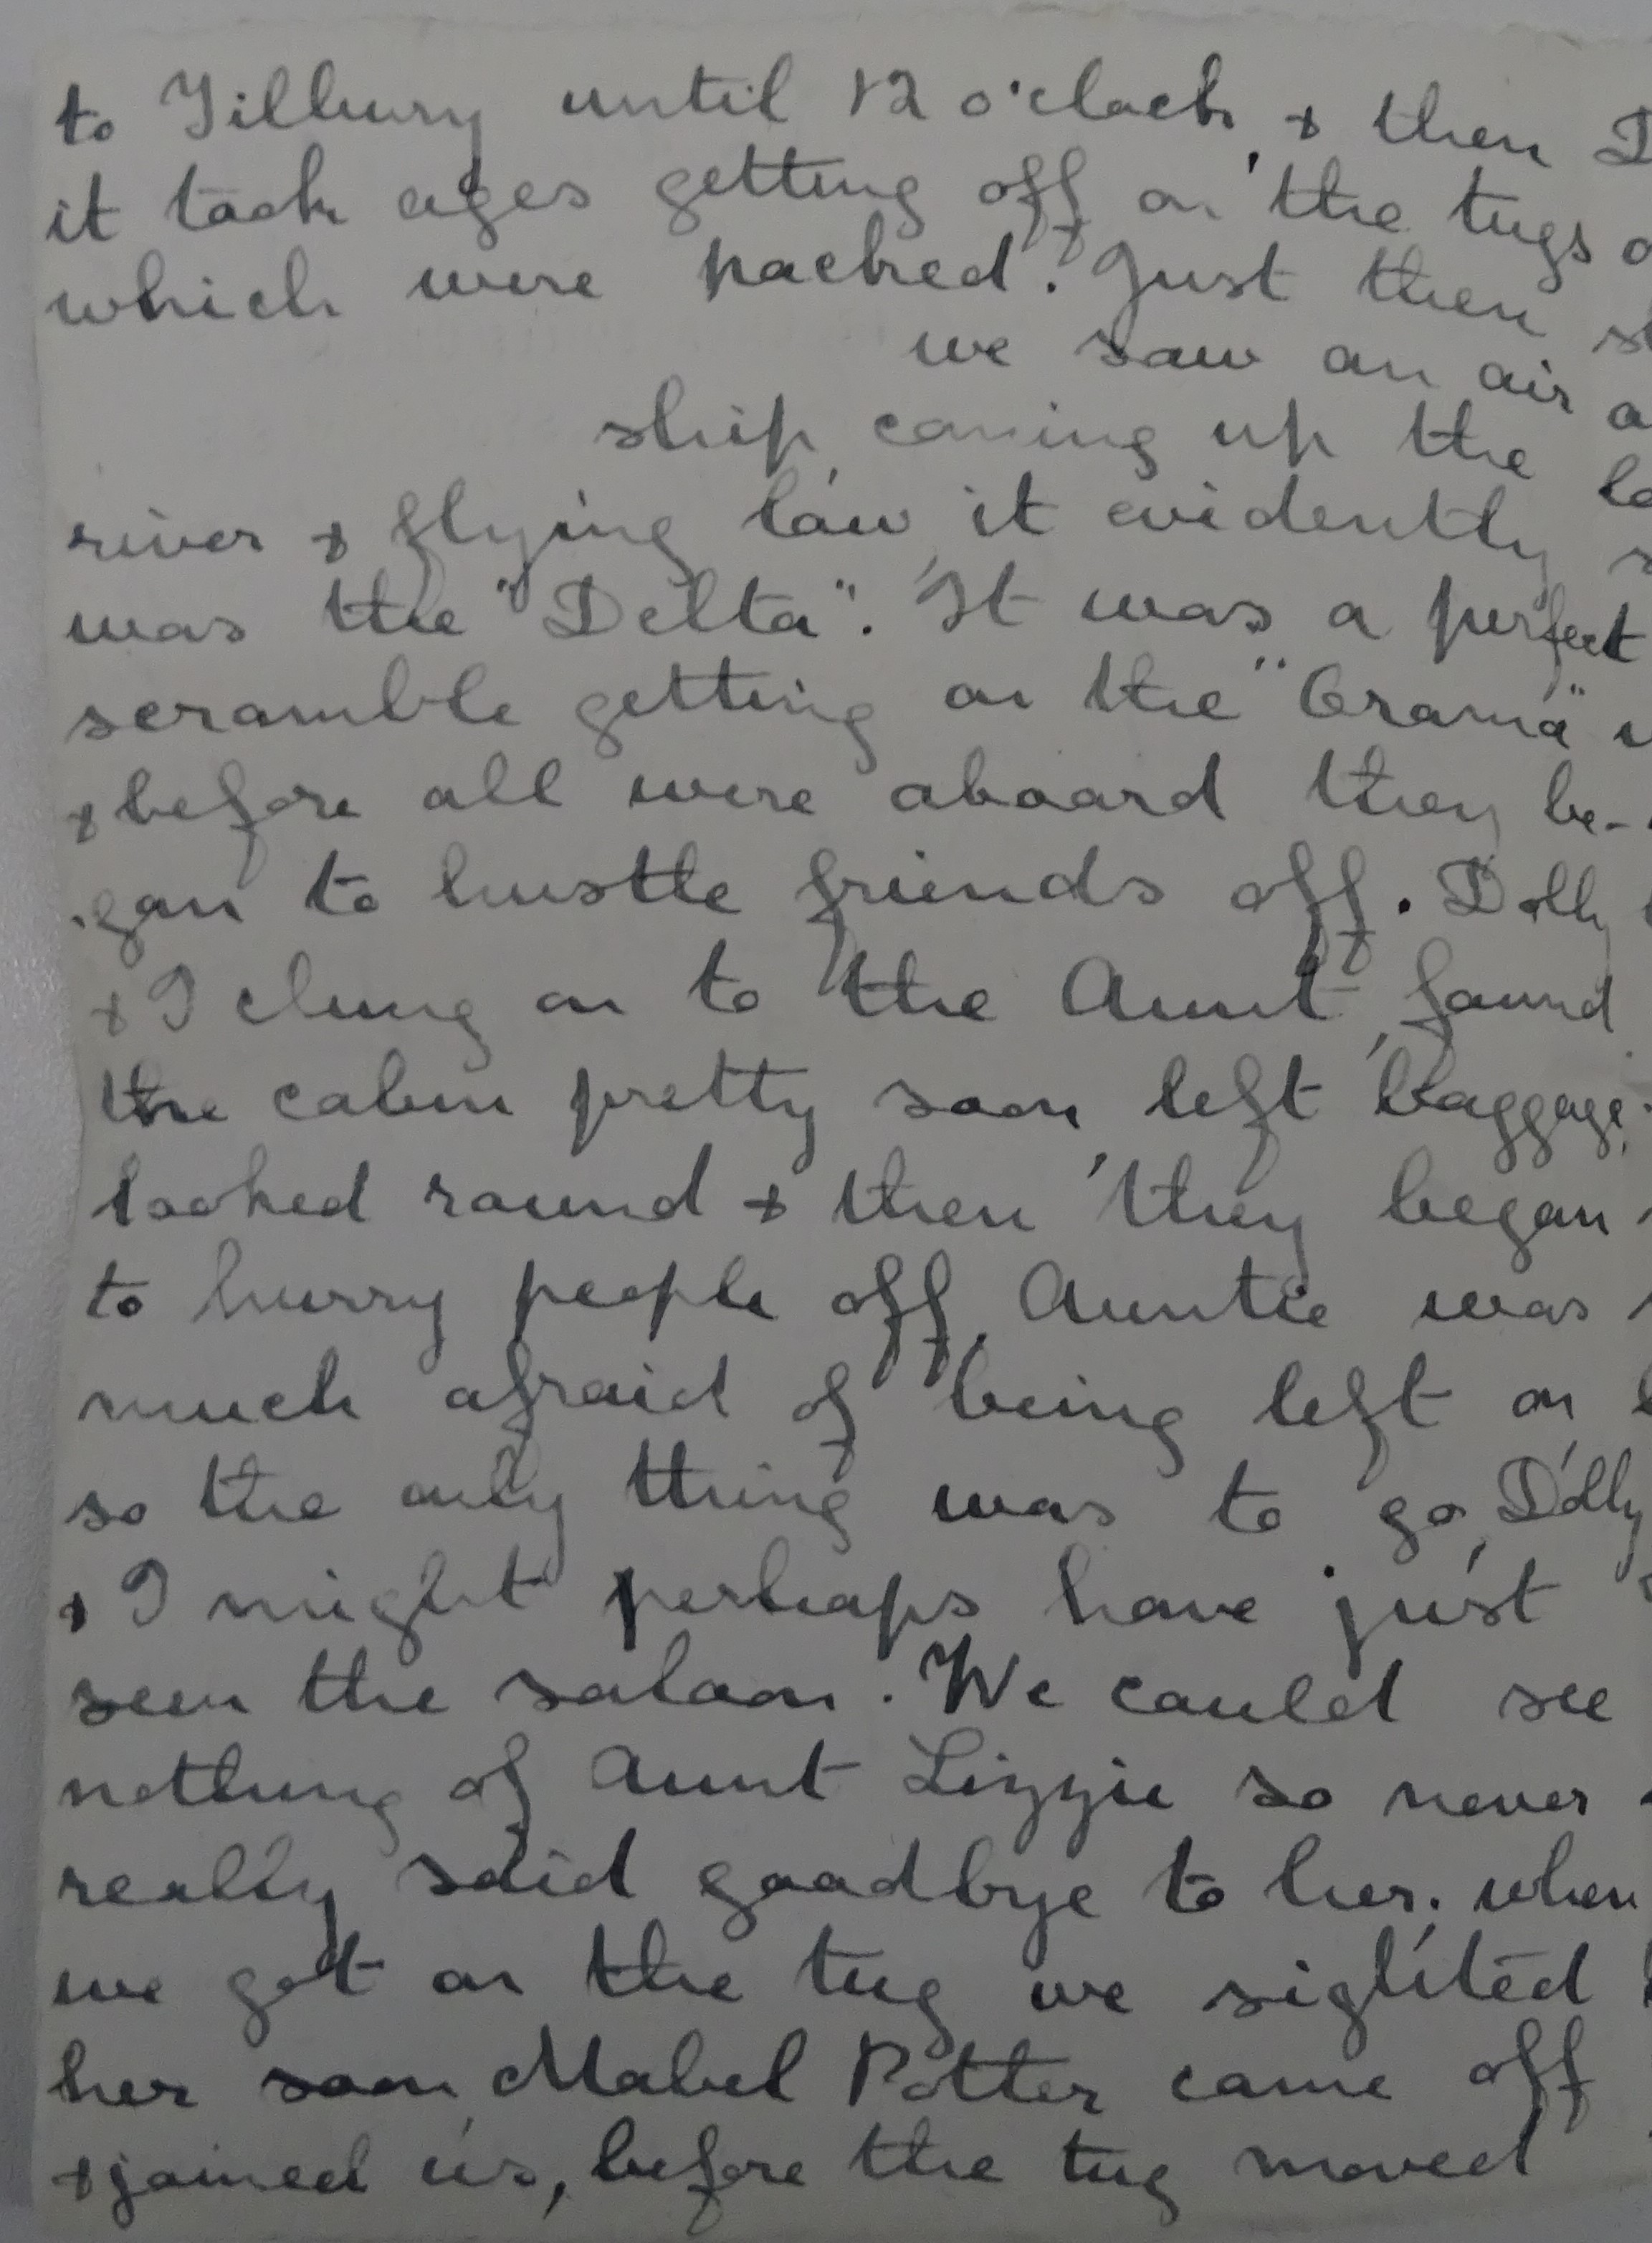 to Tilbury until 12 o'clock, & then
it took ages getting off on the tugs
which were packed. Just then
we saw an air
ship, coming up the
river & flying low, it evidently
was the "Delta". It was a perfect
scramble getting on the "Orama"
& before all were aboard they be-
gan to hustle friends off. Dolly
& I clung on to the Aunt, found
the cabin pretty soon, left baggage,
looked round & then they began
to hurry people off, Auntie was
much afraid of being left on
so the only thing was to go, Dolly
& I might perhaps have just
seen the saloon. We could see
nothing of Aunt Lizzie so never
really said goodbye to her. when
we got on the tug we sighted
her soon, Mabel Potter came off
& joined us, before the tug moved